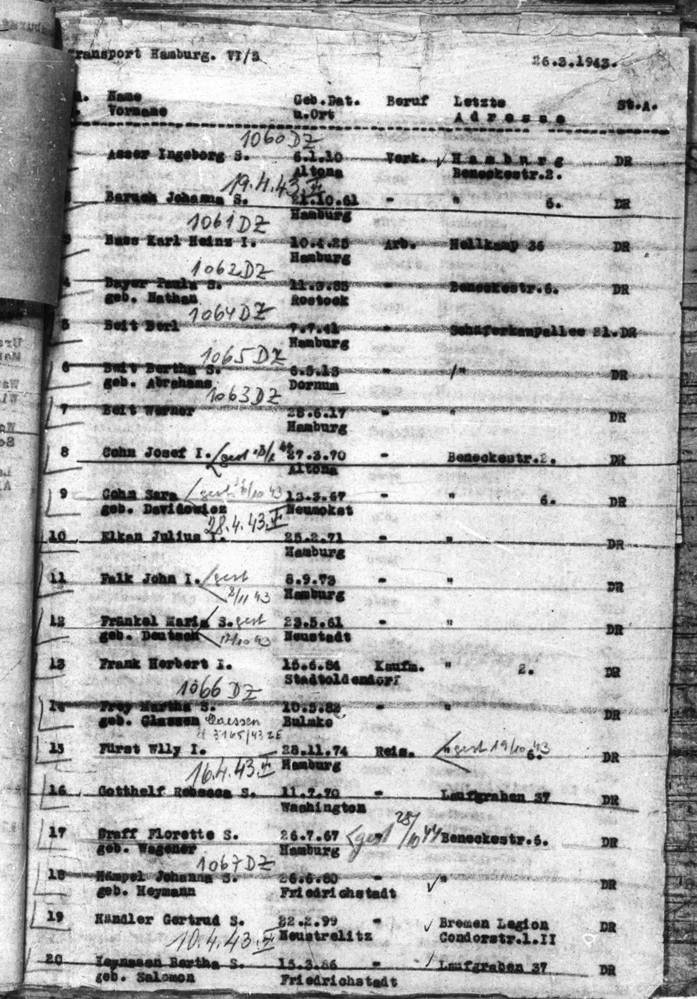 Transport Hamburg. VI/3 26.3.1943.
Name Geb.Dat. Beruf Letzte St.A.
Vorname u.Ort Adresse
1060 DZ
Asser Ingeborg S. 6.1.10 Verk. Hamburg DR
Altona Beneckestr.2.
19.4.43.
2 Baruch Johanna S. 21.10.61 " " 6. DR
Hamburg
1061 DZ
3 Karl Heinz I. 10.4.25 Arb. Hellkamp 36 DR
Hamburg
1062 DZ
4 Bayer Paula S. " Beneckestr.6. DR
geb. Nathan Rostock
1064 DZ
5 Beit Berl 7.7.41 Schäferkampallee DR
Hamburg
1065 DZ
6 Beit Bertha S. " " DR
geb. Abrahams Dornum
1063 DZ
7 Beit Werner 28.6.17 " " DR
Hamburg
8 Cohn Josef I. gest 27.3.70 " Beneckestr.2. DR
Altona
9 Cohn Sara gest 13.3.67 " " 6. DR
geb. Davidowicz
28.4.43.
10 Elkan Julius I. 25.2.71 " " DR
Hamburg
11 Falk John I. gest 8.9.73 " " DR
Hamburg
12 Fränkel Maria S. gest 23.5.61 " " DR
geb. Deutsch 12/10 43 Neustadt
13 Frank Herbert I. 15.6.84 Kaufm. " 2. DR
Stadtoldendorf
1066 DZ
14 Frey Martha S. " " DR
geb. Claessen
15 Fürst Wlly I. 28.11.74 Reis. " gest 19/10 43 6. DR
Hamburg
16.4.43.
16 Gotthelf Rebecca S. 11.7.70 " Laufgraben 37 DR
Washington
17 Graff Florette S. 26.7.67 gest 28/10 44 Beneckestr.6. DR
geb. Wagener Hamburg
1067 DZ
18 Hampel Johanna S. 26.6.80 " " DR
geb. Heymann Friedrichstadt
19 Händler Gertrud S. 22.2.99 " Bremen Legion DR
Neustrelitz Condorstr.1.II
10.4.43.
20 Heymann Bertha S. 15.3.86 " Laufgraben 37 DR
geb. Salomon Friedrichstadt